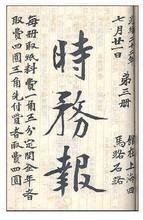 光緒二十二年
七月廿一日
第三册
館在上海四
馬路石路
時務報
每册取紙料費一角五分定閱全年者
取費四圓三角先付貲者取費四圓